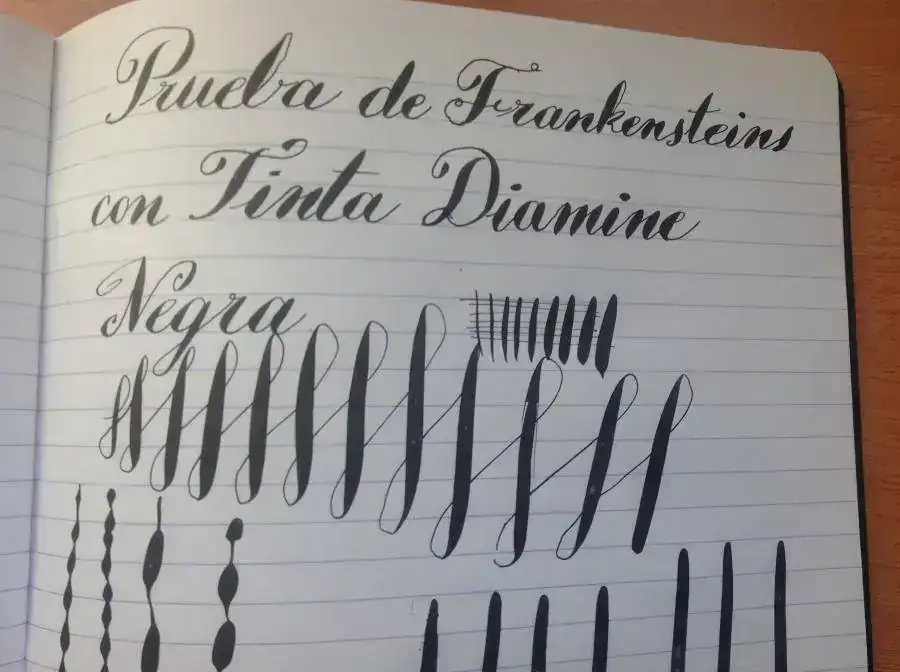 Prueba de Frankensteins
con Tinta Diamine
Negra